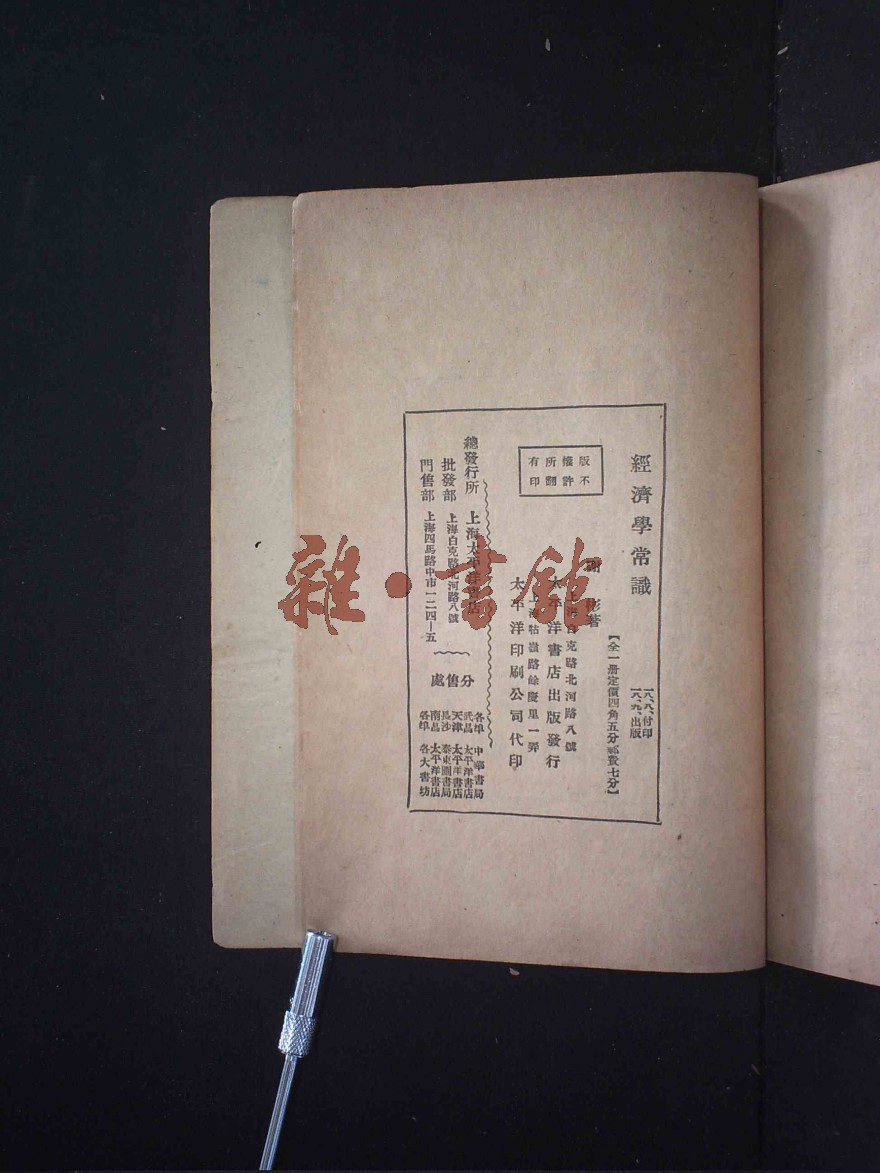 經濟學常識
一八、八、付印
一八、九、出版
【全一册定價四角五分郵費七分】
謝彬著
版權所有
不許翻印
上海白克路北河路八號
太平洋書店出版發行
上海牯嶺路餘慶里一弄
太平洋印刷公司代印
總發行所 上海太平洋書店
批發部 上海白克路北河路八號
門售部 上海四馬路中市一二四—五
分售處
各埠 中華書局
武昌 太平洋書店
天津 太平洋書店
長沙 泰東圖書局
南昌 太平洋書店
各埠 各大書坊
雜·書館